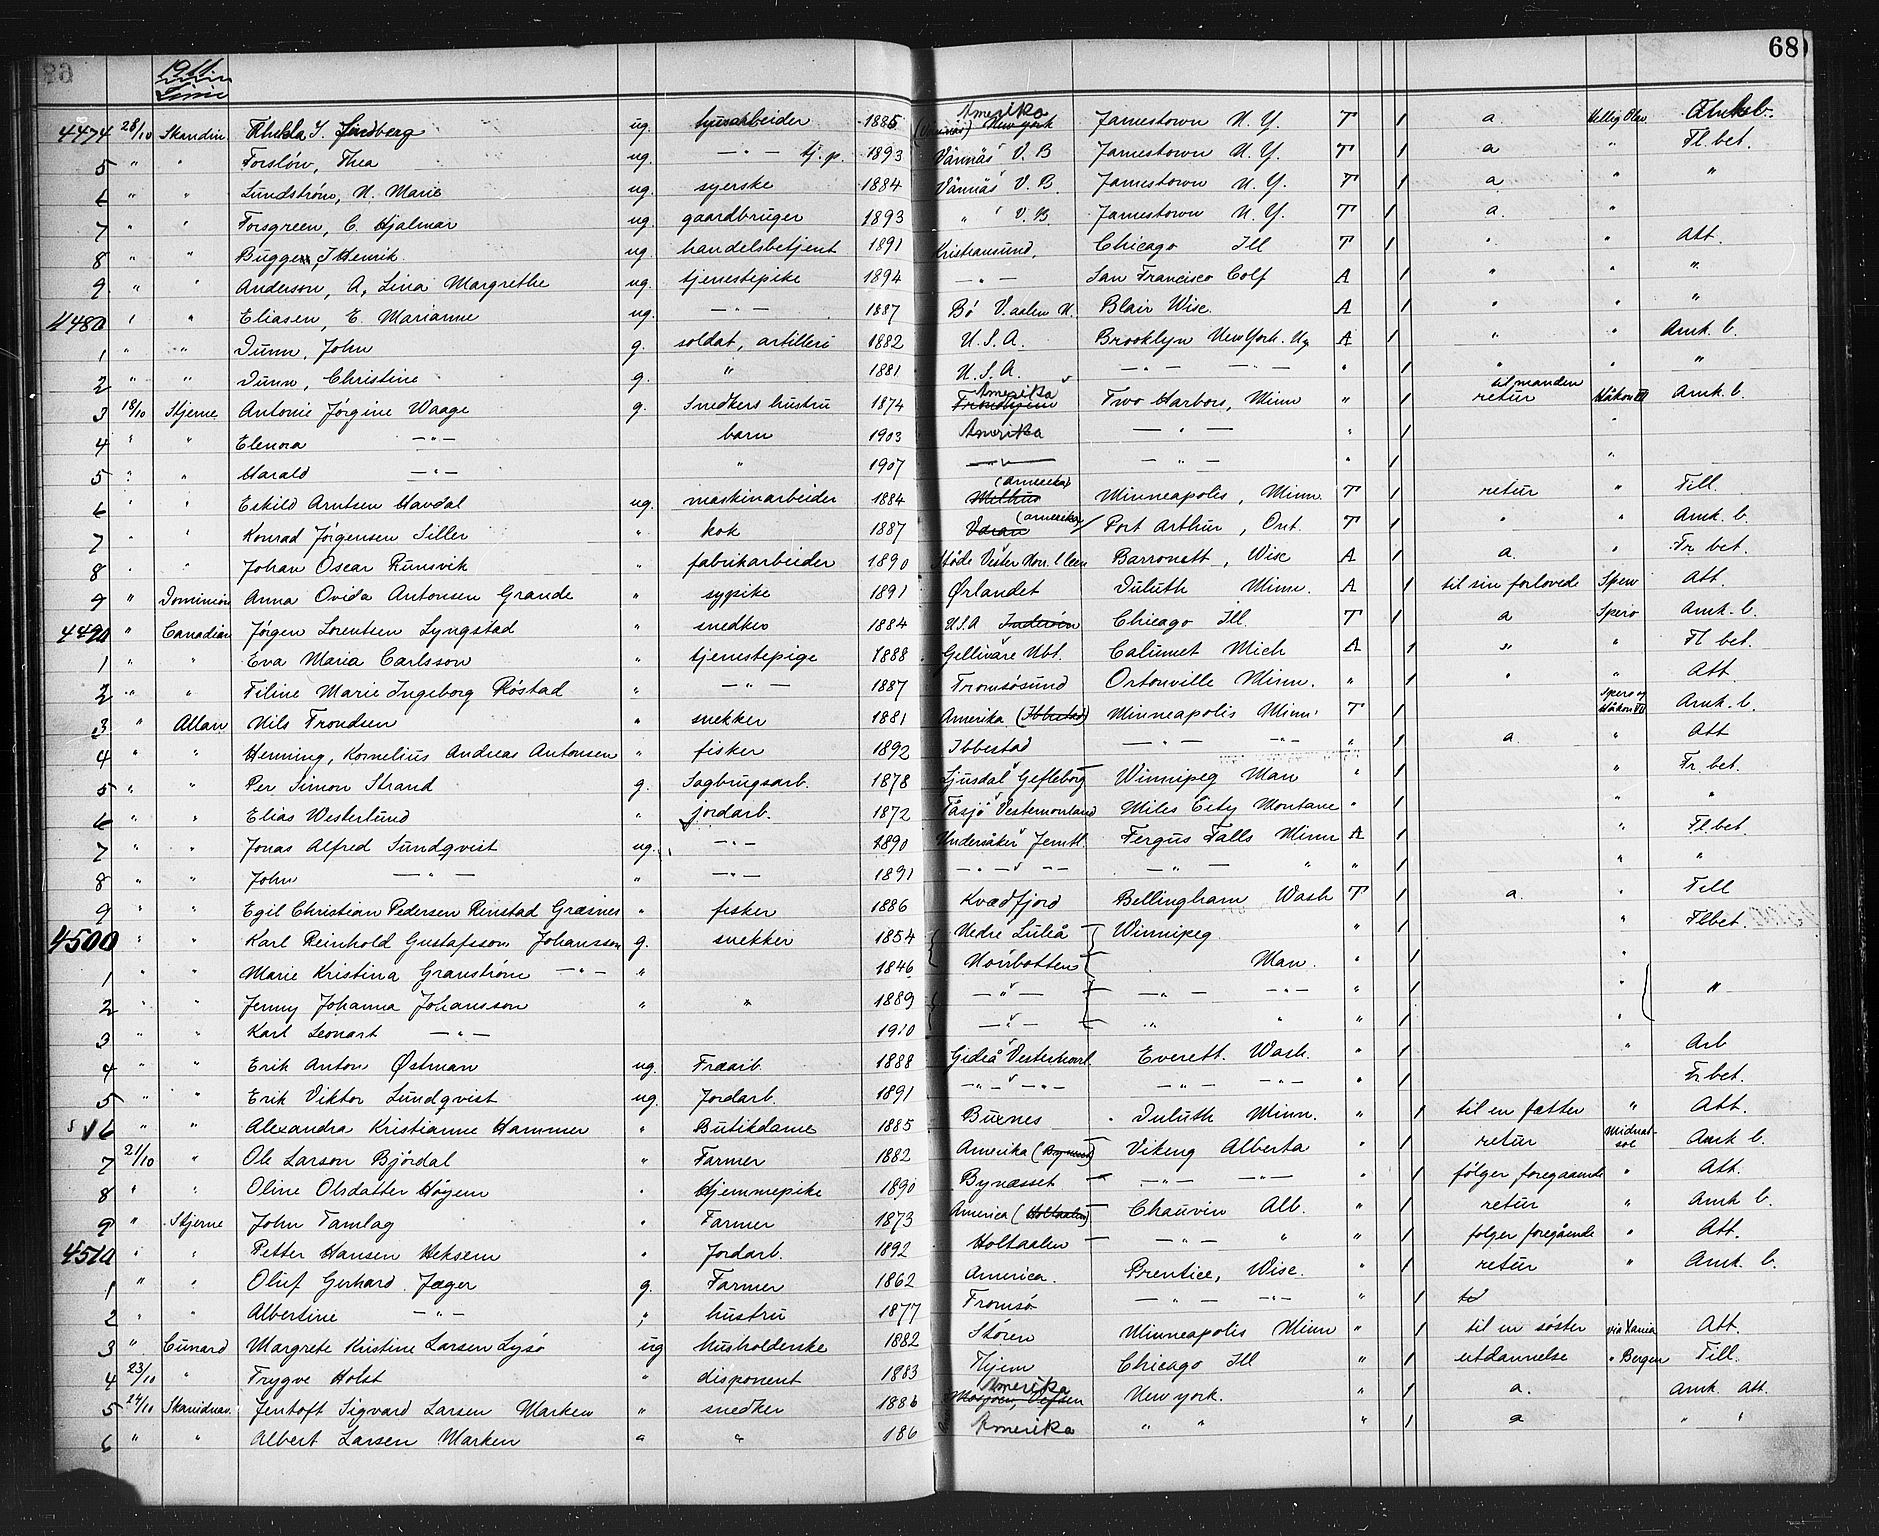 68
1911
Linie
4474 28/10 Skandin. Thekla S. Lindberg ug. husarbeider 1885 (Vännäs) New york Amerika Jamestown N. Y. T 1 a Hellig Olav Amk b.
5 " " Forslöw, Thea ug. — " — tj. p. 1893 Vännäs V. B Jamestown N. Y. T 1 a " Fl. bet.
6 " " Lundström, N. Marie ug. syerske 1884 Vännäs V. B. Jamestown N. Y. T 1 a " "
7 " " Forsgreen, C. Hjalmar ug. gaardbruger 1893 " V. B Jamestown N. Y. T 1 a. "
8 " " Buggen, J Henrik ug. handelsbetjent 1891 Kristiansund, Chicago Ill T 1 " " Att.
9. " " Anderson, A, Lina Margrethe ug. tjenestepike 1894 — " — San Francisco Calf A 1 " " "
4480 " " Eliasen, E. Marianne ug. — " — 1887 Bö V. aalen N. Blair Wisc. A 1 " " "
1 " " Dunn, John g. soldat, artilleri 1882 U. S. A. Brooklyn New York. Ny A 1 " " Amk. b.
2 " " Dunn, Christine g. " 1881 U. S. A. — " — — " — " 1 " " "
3 18/10 Stjerne Antonie Jörgine Waage g. Snedkers hustru 1874 Trondhjem Amerika Two Harbors, Minn " 1 til manden retur Håkon VII Amk. b.
4 " " Elenora — " — barn 1903 Amerika — " — " 1 "
5 " " Harald — " — " 1907 — " — — " — " 1 "
6 " " Eskild Arntsen Havdal ug. maskinarbeider 1884 Melhus (amerika) Minneapolis, Minn. T 1 retur " Till.
7 " " Konrad Jörgensen Siller " kok 1887 (amerika) Port Arthur, Ont. T 1 " " Amk. b.
8 " " Johan Oscar Runsvik " fabrikarbeider 1890 Barronett, Wisc A 1 a. " Fr. bet.
9 " Dominion Anna Ovida Antonsen Grande " sypike 1891 Ørlandet Duluth Minn. A 1 til sin forlovede Spero Att.
4490 " Canadian Jörgen Lorentsen Lyngstad " snedker 1884 U.S.A Inderöen Chicago Ill. T 1 a Spero Amk. b.
1 " " Eva Maria Carlsson " tjenestepige 1888 Gellivare Nbt. Calumet Mich A 1 " " Fl bet.
2 " " Filine Marie Ingeborg Röstad " — " — 1887 Tromsösund Ortonville Minn. " 1 " " Att
3 " Allan Nils Trondsen " snekker 1881 Amerika (Ibbestad) Minneapolis Minn. T 1 Spero og Håkon VII Amk. b.
4 " " Henning, Kornelius Andreas Antonsen " fisker 1892 Ibbestad — " — — " — " 1 a. " Att
5 " " Per Simon Strand g. Sagbrugsarb. 1878 Ljusdal Gefleborg Winnipeg Man " 1 " Fr. bet.
6 " " Elias Westerlund " jordarb. 1872 Tåsjö Vesternorrland Miles City Montane " 1 " "
7 " " Jonas Alfred Sundqvist ug. — " — 1890 Undersåker Jemtl. Fergus Falls Minn A 1 " Fl bet.
8 " " John — " — " — " — 1891 — " — " — — " — " " 1 " "
9 " " Egil Christian Pedersen Rinstad Græsnes " fisker 1886 Kvædfjord Bellingham Wash T 1 a. " Till
4500 " " Karl Reinhold Gustafsson Johansson g. snekker 1854 Nedre Luleå Winnipeg " 1 " Flbet.
1 " " Marie Kristina Granström — " — " 1846 Norrbotten . Man. " 1 "
2 " " Jenny Johanna Johansson " " 1889 — " — — " — — " — " 1 " "
3 " " Karl Leonart — " — 1910 — " — " " " 1 "
4 " " Erik Anton Østman ug. Træarb. 1888 Gideå Vesternorrl. Everett. Wash. " 1 " Arb
5 " " Erik Viktor Lundqvist ug. Jordarb. 1891 — " — " — — " — — " — " 1 Fr bet.
6 " " Alexandra Kristianne Hammer " Butikdame 1885 Buxnes Duluth Minn. " 1 til en fætter " Att.
7 21/10 " Ole Larson Björdal " Farmer 1882 Amerika (Bynesset) Viking Alberta " 1 retur Midnat-sol Amk b.
8 " " Oline Olsdatter Höyem " Hjemmepike 1890 Bynæsset — — " — — " — " 1 fölger foregaaende " Att.
9 " Stjerne John Tamlag " Farmer 1873 America (Holtaalen) Chauvin Alb. " 1 retur " Amk b.
4510 " " Petter Hansen Heksem " Jordarb. 1892 Holtaalen — — " — " " 1 folger foregående " Att.
1 " " Oluf Gerhard Jæger g. Farmer 1862 America. Prentice, Wisc. " 1 retur " Amk. b.
2 " " Albertine — " — " hustru 1877 Tromsö — " — — " — " 1 td
3 " Cunard Margrete Kristine Larsen Lysö ug husholderske 1882 Stören Minneapolis Minn " 1 til en söster via Xania Att.
4 23/10 " Trygve Holst " disponent 1883 Hjem Chicago Ill " 1 utdannelse " Bergen Till.
5 24/10 Skandinav. Jentoft Sigvard Larsen Marken " snedker 1886 Mosjöen, Vefsen Amerika New york. " 1 a. Amk. Att.
6 " " Albert Larsen Marken " " 186 Amerika " " " 1 a " "